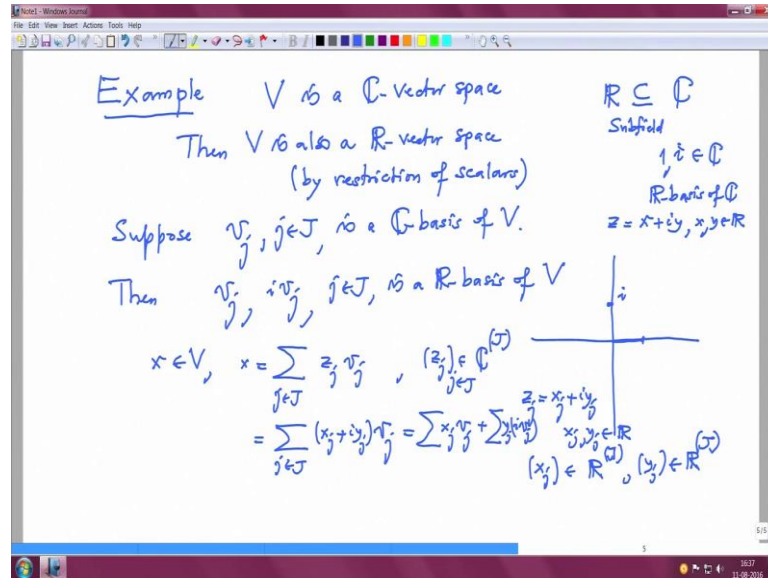 Note1 - Windows Journal
File Edit View Insert Actions Tools Help
Example V is a ℂ-vector space
Then V is also a ℝ-vector space
(by restriction of scalars)
Suppose v_j, j∈J, is a ℂ-basis of V.
Then v_j, iv_j, j∈J, is a ℝ-basis of V
x∈V, x = ∑_{j∈J} z_j v_j, (z_j)_{j∈J} ∈ ℂ^{(J)}
z_j = x_j + iy_j
= ∑_{j∈J} (x_j + iy_j) v_j = ∑ x_j v_j + ∑ y_j (iv_j) x_j, y_j ∈ ℝ
(x_j) ∈ ℝ^{(J)}, (y_j) ∈ ℝ^{(J)}
ℝ ⊆ ℂ
Subfield
1, i ∈ ℂ
ℝ-basis of ℂ
z = x + iy, x, y ∈ ℝ
i
5/5
5
16:37
11-08-2016